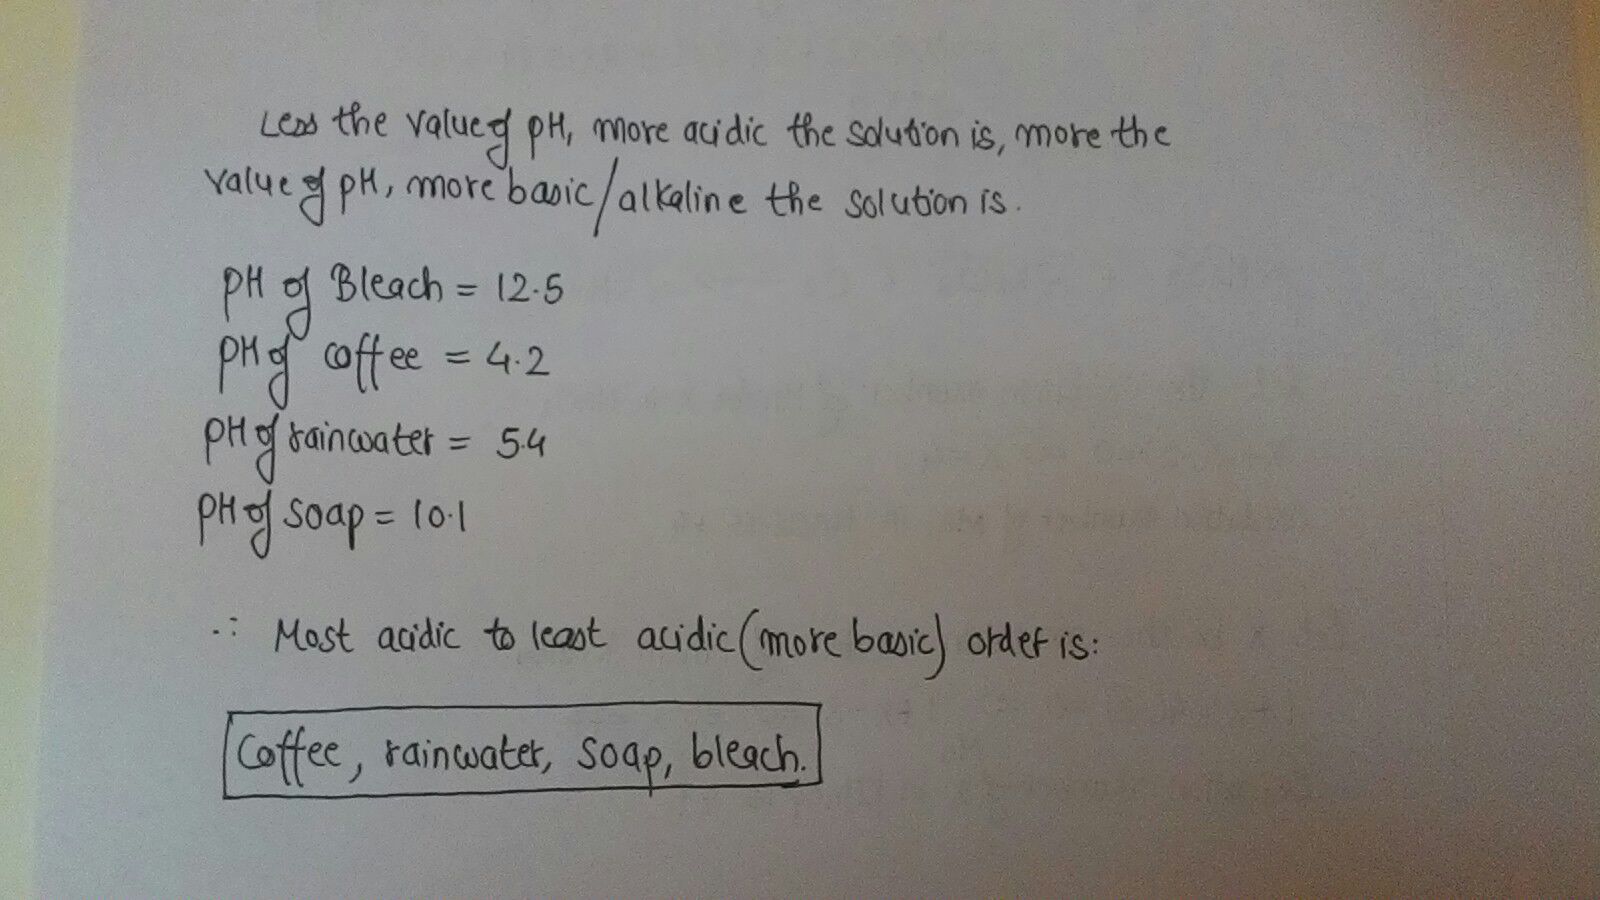 Less the value of pH, more acidic the solution is, more the
value of pH, more basic/alkaline the solution is.
pH of Bleach = 12.5
pH of coffee = 4.2
pH of rainwater = 5.4
pH of soap = 10.1
∴ Most acidic to least acidic (more basic) order is:
Coffee, rainwater, soap, bleach.